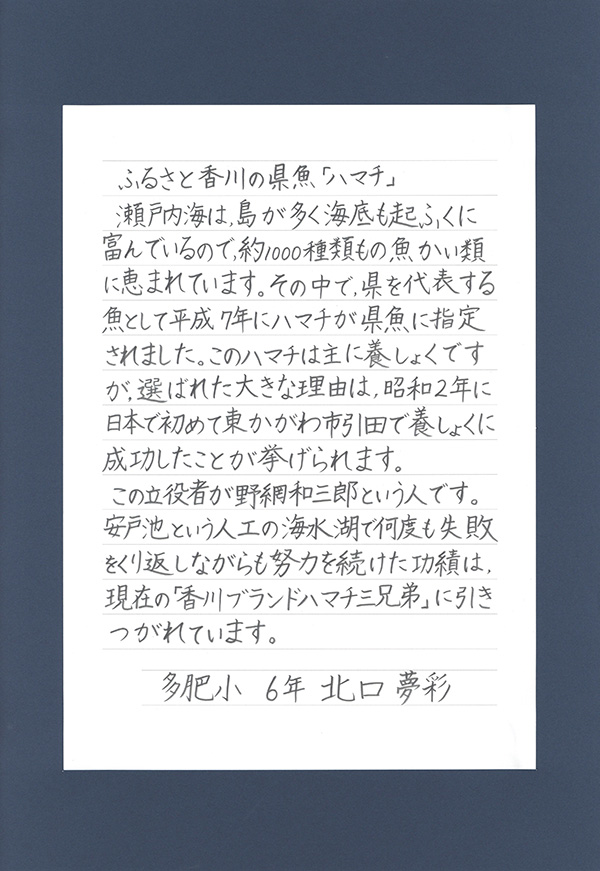 ふるさと香川の県魚「ハマチ」
瀬戸内海は,島が多く海底も起ふくに
富んでいるので,約1000種類もの魚かい類
に恵まれています。その中で,県を代表する
魚として平成7年にハマチが県魚に指定
されました。このハマチは主に養しょくです
が,選ばれた大きな理由は,昭和2年に
日本で初めて東かがわ市引田で養しょくに
成功したことが挙げられます。
この立役者が野網和三郎という人です。
安戸池という人工の海水湖で何度も失敗
をくり返しながらも努力を続けた功績は,
現在の「香川ブランドハマチ三兄弟」に引き
つがれています。
多肥小 6年 北口 夢彩